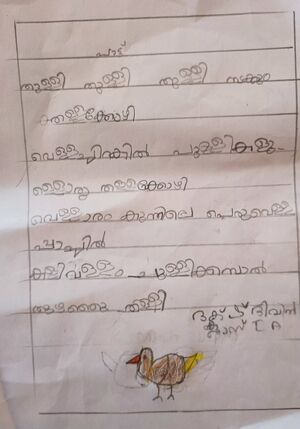 പാട്ട്
തുള്ളി തുള്ളി തുള്ളി നടക്കും
തള്ളക്കോഴി
വെള്ളച്ചിറകിൽ പുള്ളികളു-
ള്ളൊരു തള്ളക്കോഴി
വെള്ളാരം കുന്നിലെ പെരുവെള്ള
പ്പാച്ചിൽ
കളിവള്ളം
തുഴഞ്ഞു തള്ളി
ക്ലാസ് I A